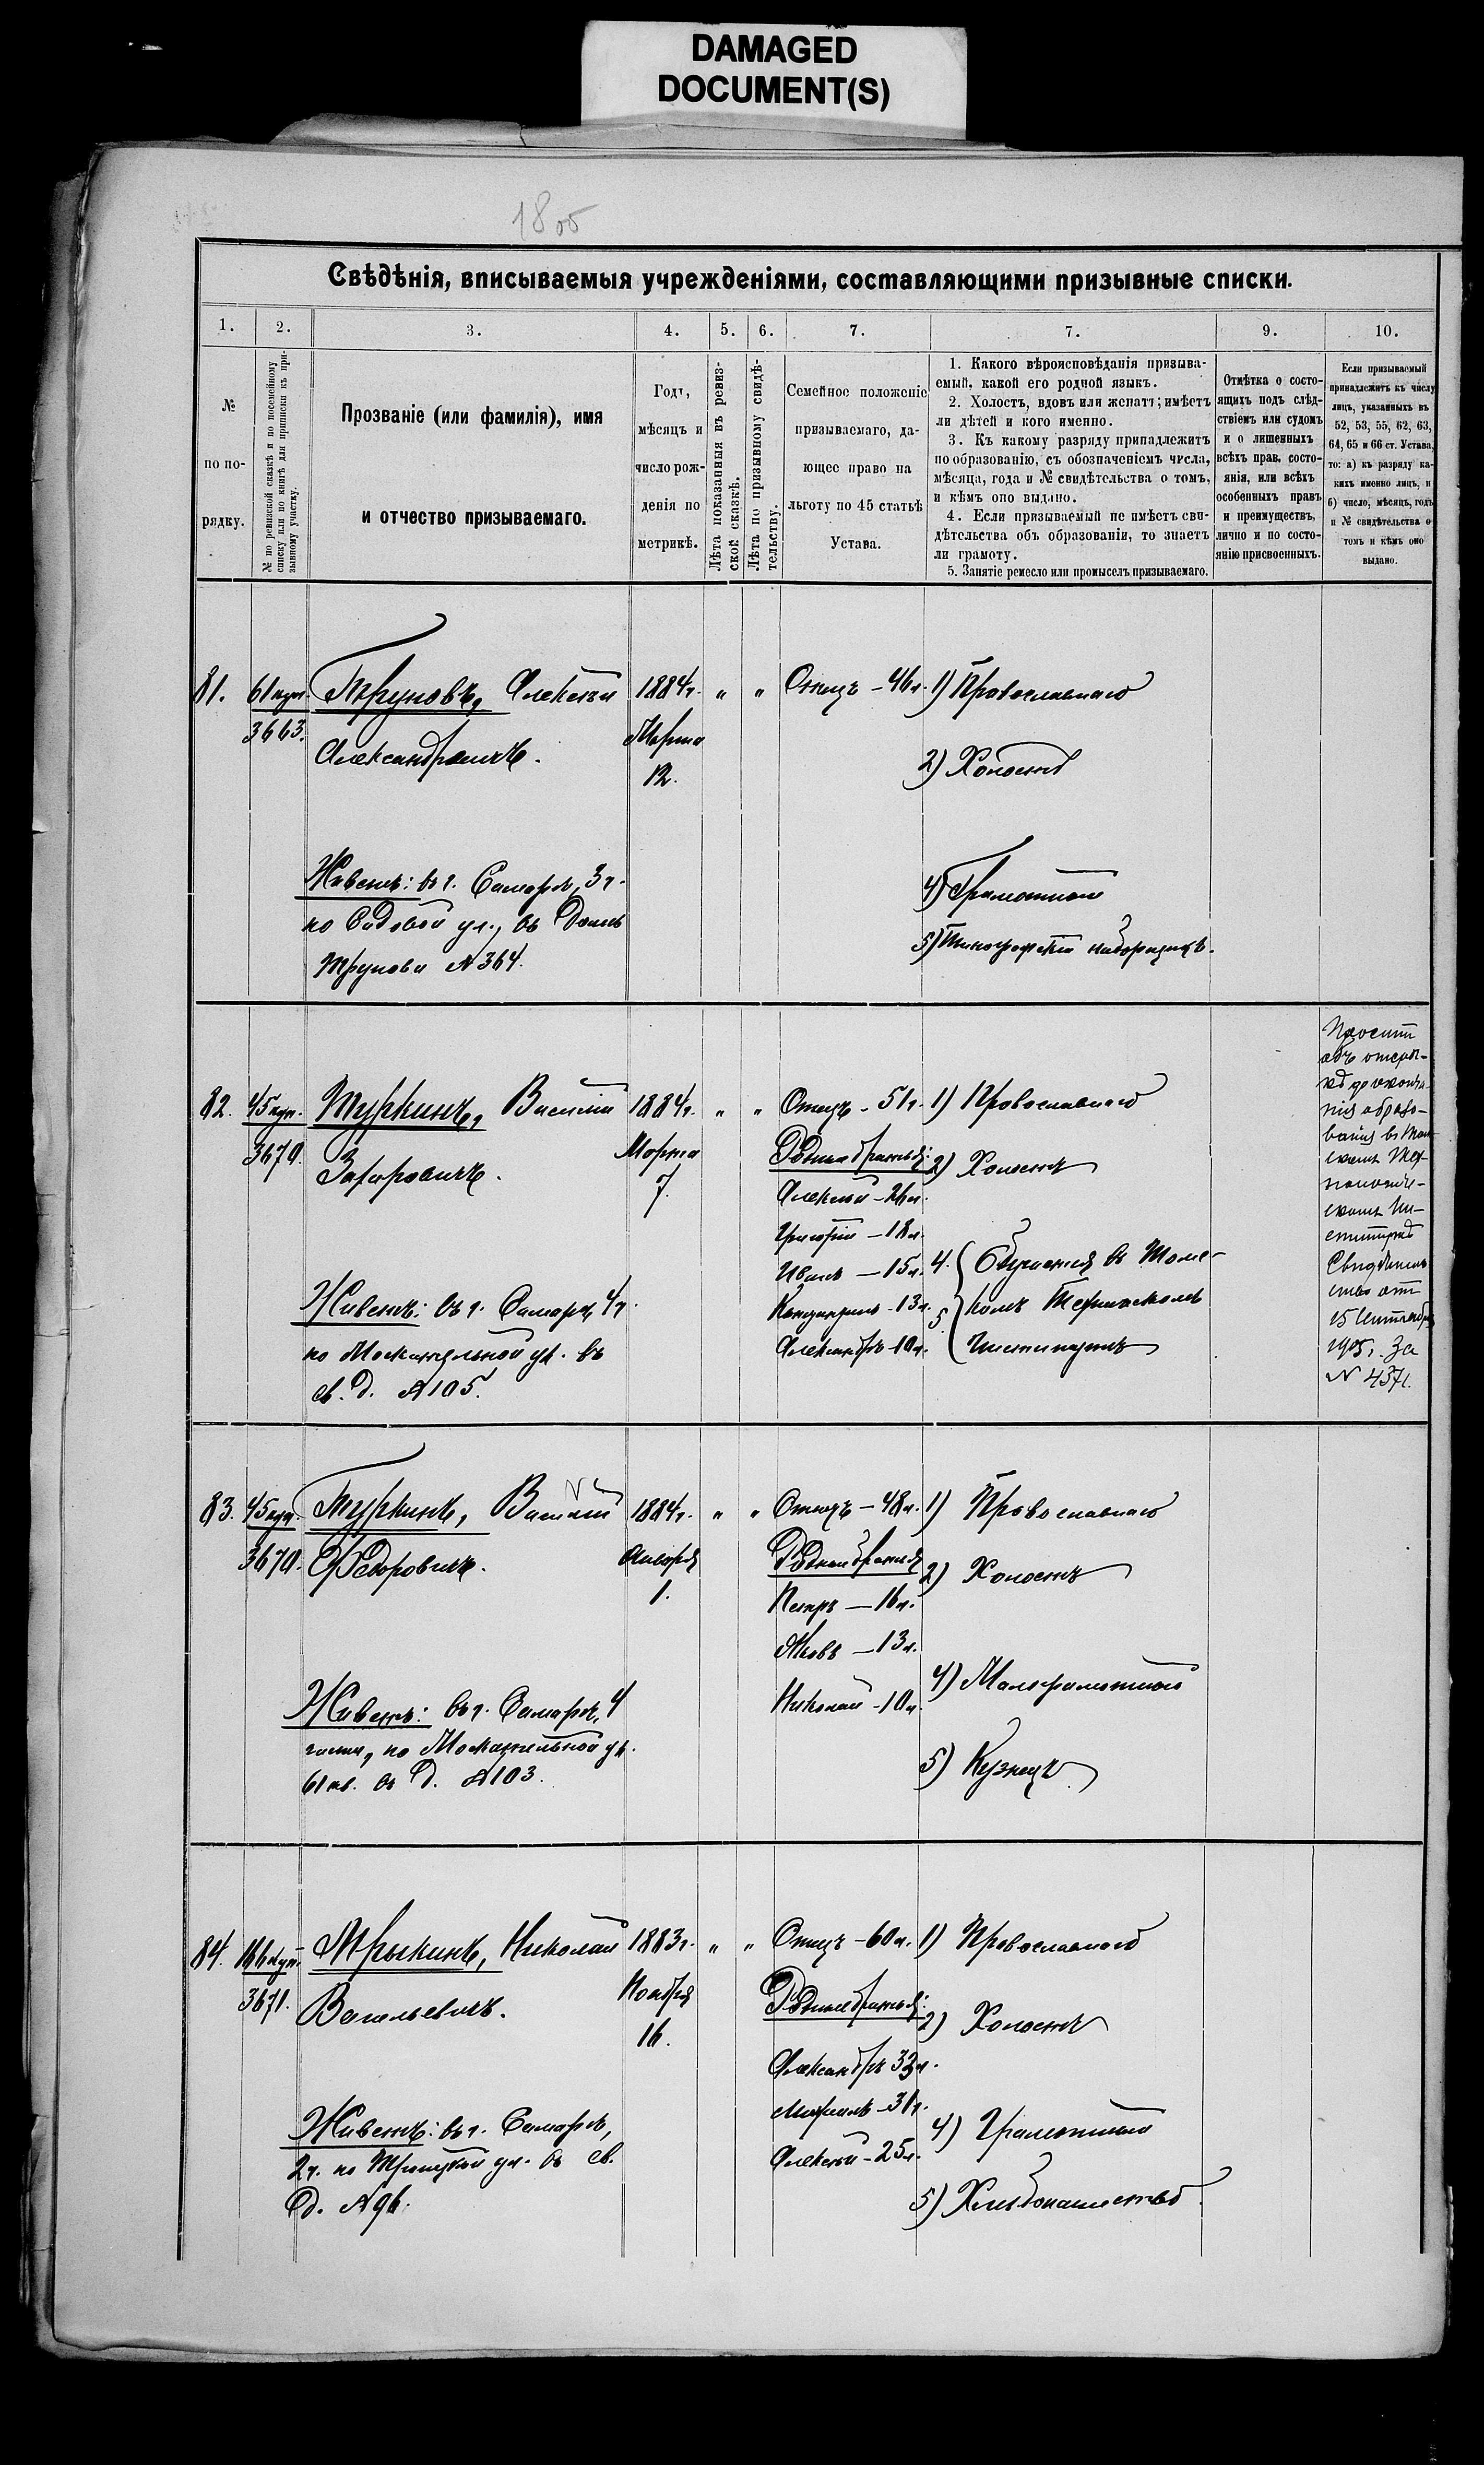 DAMAGED
DOCUMENT(S)
Свѣдѣнія, вписываемыя учрежденіями, составляющими призывные списки.
1. 2. 3. 4. 5. 6. 7. 7. 9. 10.
№
по по-
рядку.
№ по ревизской сказкѣ и по посемейному
списку или по книгѣ для приписки къ при-
зывному участку.
Прозваніе (или фамилія), имя
и отчество призываемаго.
Годъ,
мѣсяцъ и
число рож-
денія по
метрикѣ.
Лѣта показанныя въ ревиз-
ской сказкѣ.
Лѣта по призывному свидѣ-
тельству.
Семейное положеніе
призываемаго, да-
ющее право на
льготу по 45 статьѣ
Устава.
1. Какого вѣроисповѣданія призыва-
емый, какой его родной языкъ.
2. Холостъ, вдовъ или женатъ; имѣетъ
ли дѣтей и кого именно.
3. Къ какому разряду принадлежитъ
по образованію, съ обозначеніемъ числа,
мѣсяца, года и № свидѣтельства о томъ,
и кѣмъ оно выдано.
4. Если призываемый не имѣетъ сви-
дѣтельства объ образованіи, то знаетъ
ли грамоту.
5. Занятіе ремесло или промыселъ призываемаго.
Отмѣтка о состо-
ящихъ подъ слѣд-
ствіемъ или судомъ
и о лишенныхъ
всѣхъ прав. состо-
янія, или всѣхъ
особенныхъ правъ
и преимуществъ,
лично и по состо-
янію присвоенныхъ.
Если призываемый
принадлежитъ къ числу
лицъ, указанныхъ въ
52, 53, 55, 62, 63,
64, 65 и 66 ст. Устава,
то: а) къ разряду ка-
кихъ именно лицъ, и
б) число, мѣсяцъ, годъ
и № свидѣтельства о
томъ и кѣмъ оно
выдано.
81.
3663.
Труновъ, Алексѣй
Александровичъ.
Живетъ: въ г. Самарѣ, 3 ч.
по Садовой ул., въ домѣ
Трунова № 364.
1884 г.
Марта
12.
" "
Отецъ - 46 л.
1) Православнаго
2) Холостъ
4) Грамотный
5) Типографскій наборщикъ.
82.
3670.
Туркинъ, Василій
Захаровичъ.
Живетъ: въ г. Самарѣ, 4 ч.
по Москательной ул. въ
св. д. № 105.
1884 г.
Марта
7.
" "
Отецъ - 51 г.
Родные братья:
Алексѣй - 26 л.
Григорій - 18 л.
Иванъ - 15 л.
13 л.
Александръ - 10 л.
1) Православнаго
2) Холостъ
4. Обучается въ Томс-
5 комъ
Институтѣ
15 Сентября
1905 г. за
№ 4371.
83.
3670.
Туркинъ, Василій
Федоровичъ.
Живетъ: въ г. Самарѣ, 4
части, по Москательной ул.
61 кв. въ д. № 103.
1884 г.
Января
1.
" "
Отецъ - 48 л.
Родные братья
Петръ - 16 л.
Яковъ - 13 л.
Николай - 10 л.
1) Православнаго
2) Холостъ
4) Малограмотный
5) Кузнецъ
84.
3671.
Николай
Васильевичъ.
Живетъ: въ г. Самарѣ,
2 ч. по Троицкой ул. въ св.
д. № 96.
1883 г.
Ноября
16.
" "
Отецъ - 60 л.
Родные братья:
Александръ 33 л.
Михаилъ - 31 г.
Алексѣй - 25 л.
1) Православнаго
2) Холостъ
4) Грамотный
5) Хлѣбопашество.